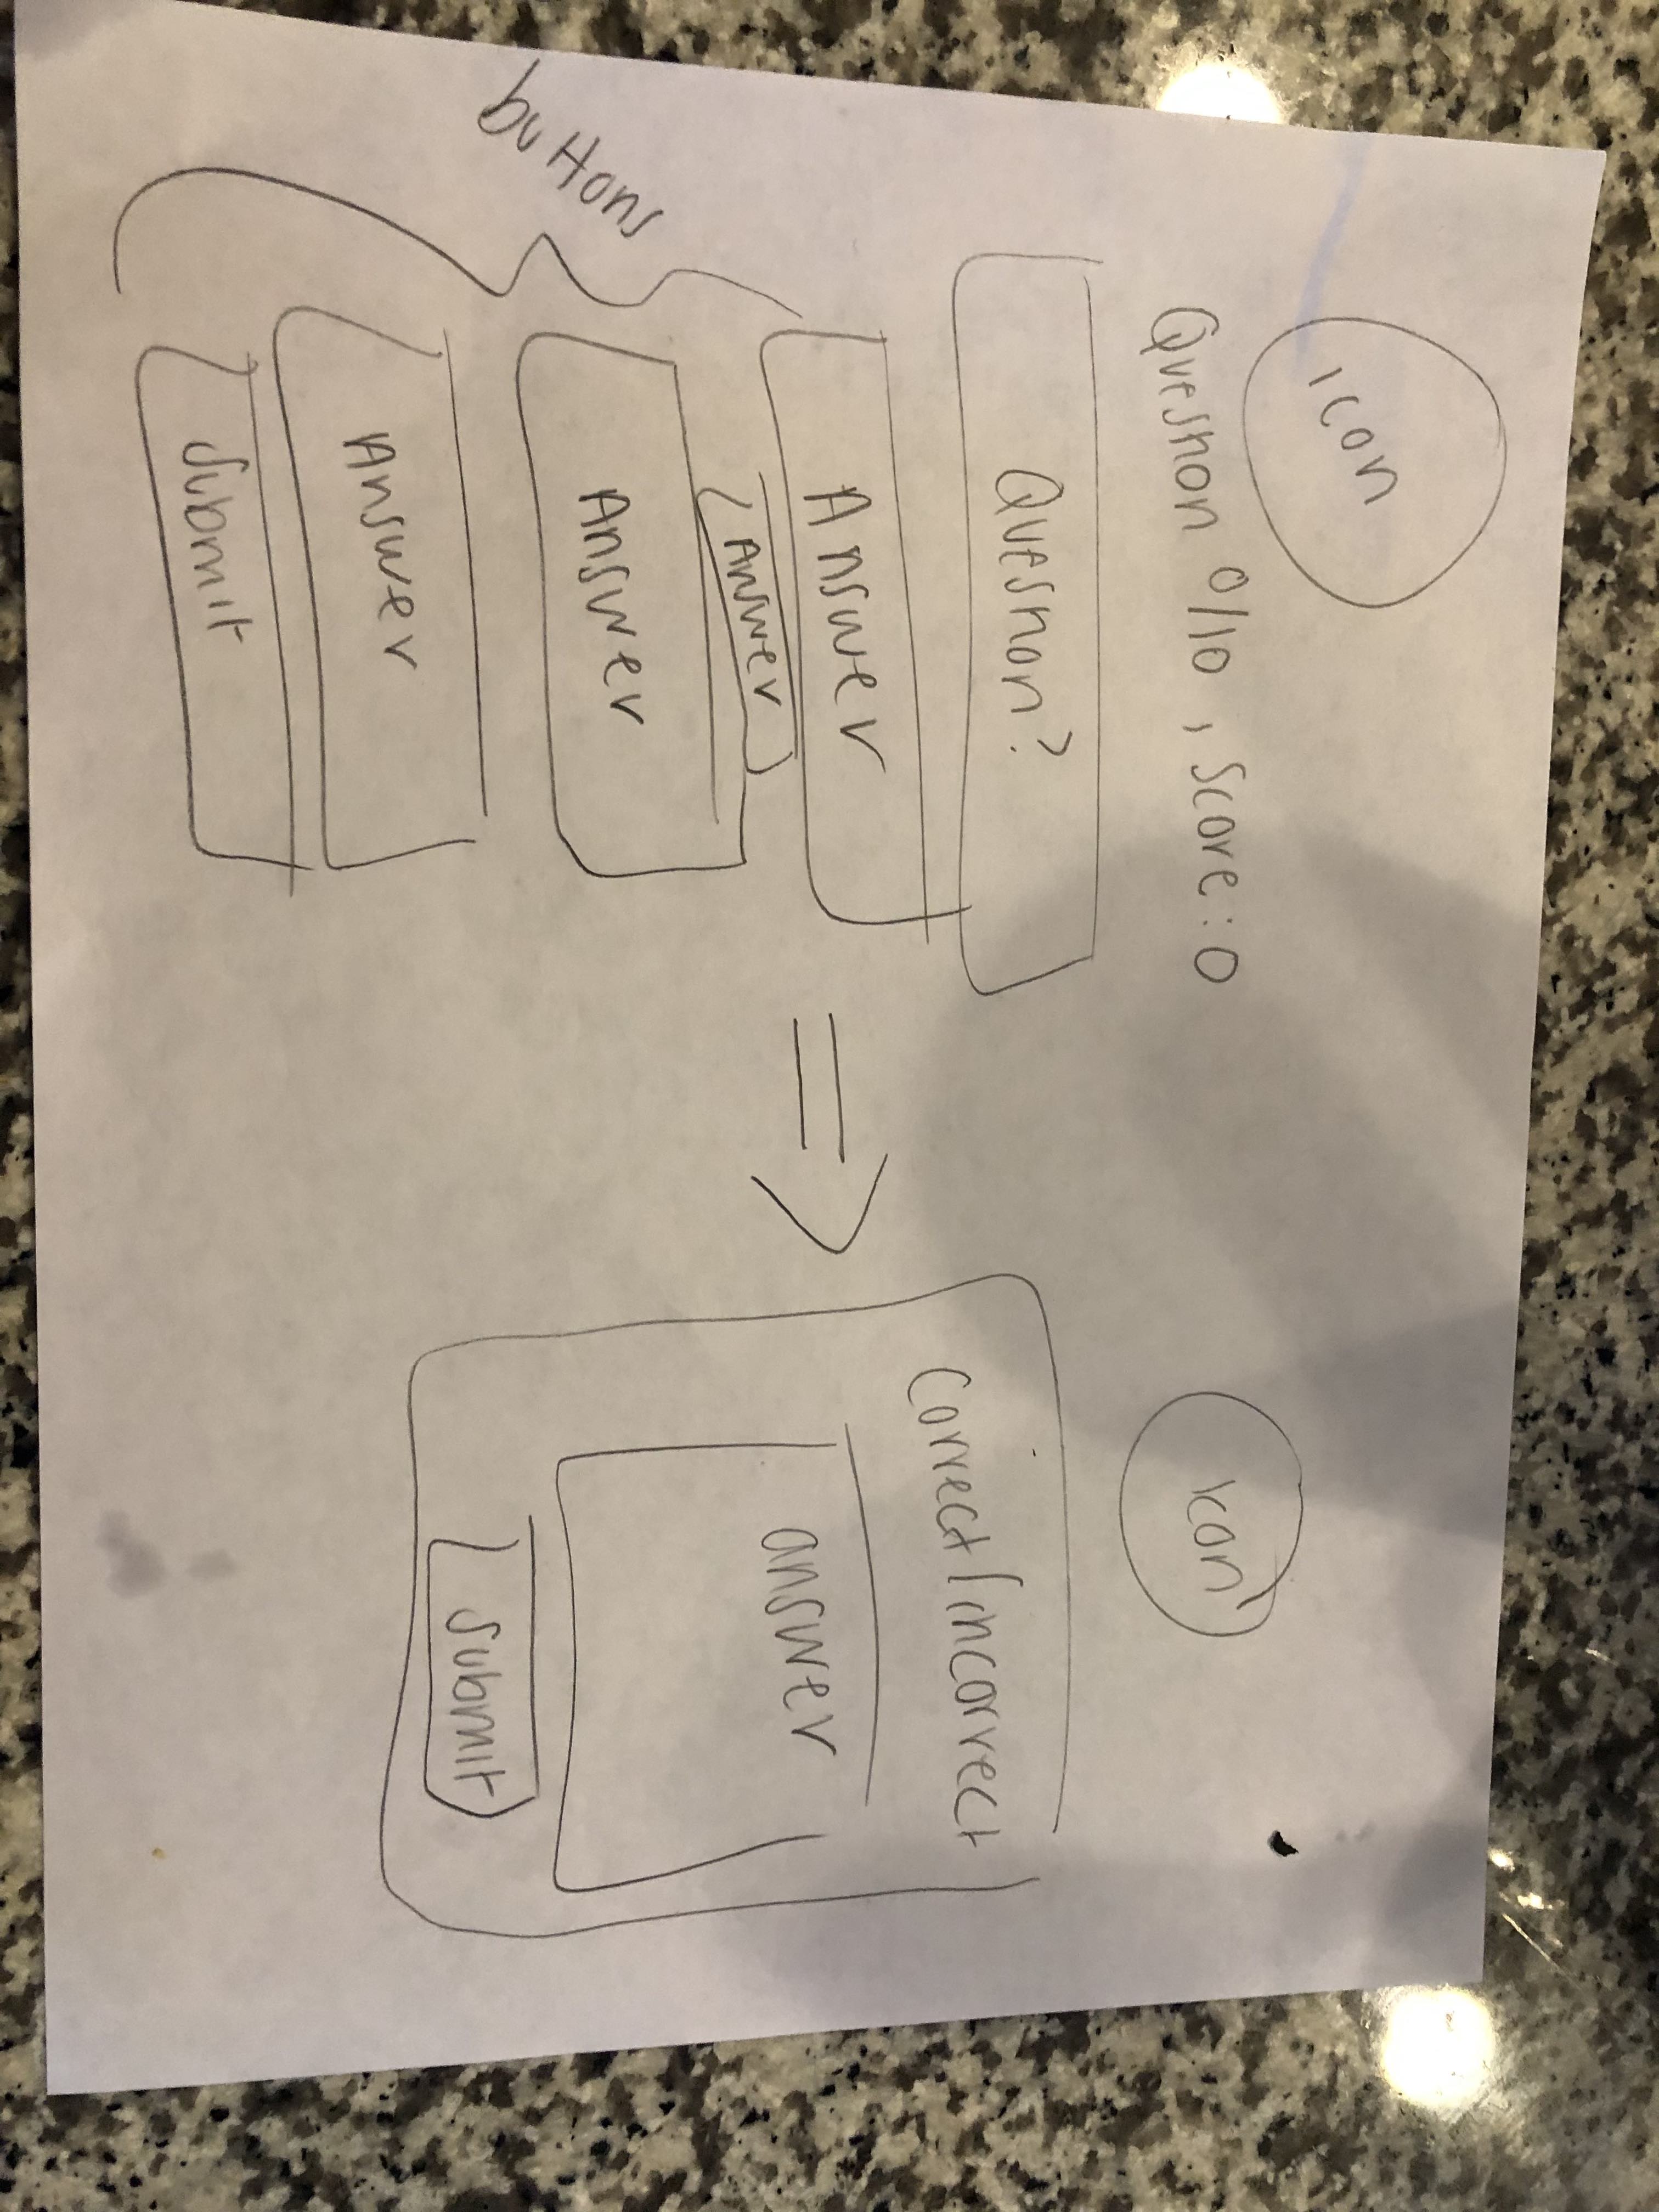 icon
Question 0/10, Score: 0
Question?
Answer
Answer
Answer
Answer
Submit
buttons
icon
Correct/incorrect
answer
submit